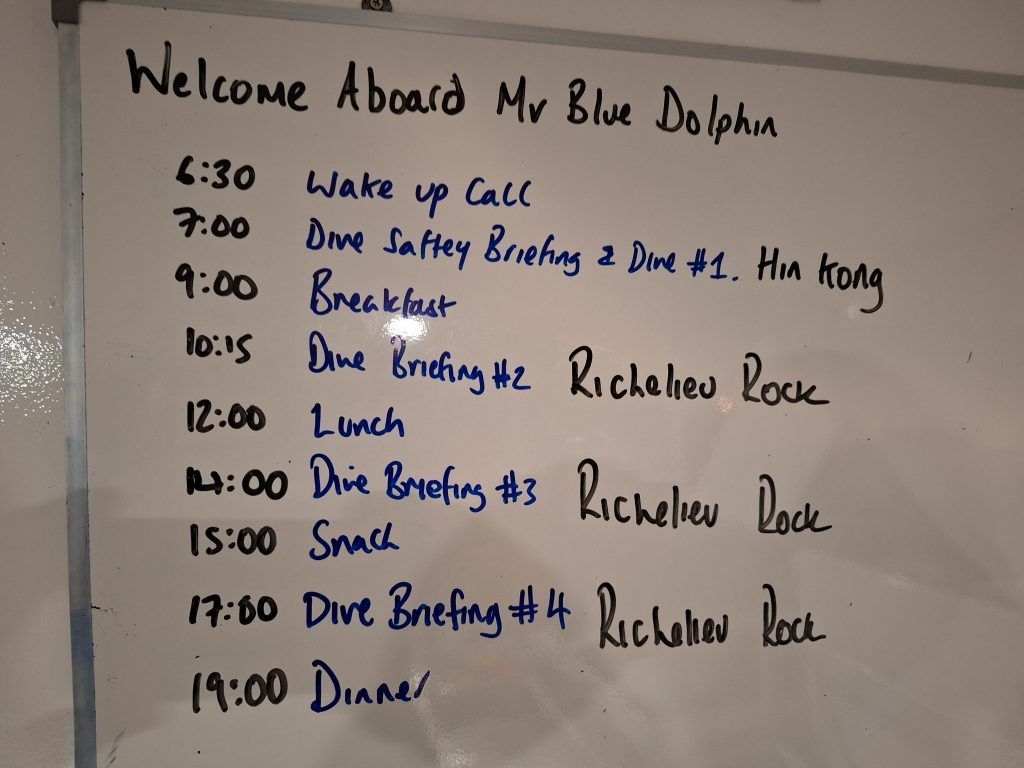 Welcome Aboard Mv Blue Dolphin
6:30 Wake up Call
7:00 Dive Saftey Briefing & Dive #1. Hin Kong
9:00 Breakfast
10:15 Dive Briefing #2 Richelieu Rock
12:00 Lunch
14:00 Dive Briefing #3 Richelieu Rock
15:00 Snack
17:00 Dive Briefing #4 Richelieu Rock
19:00 Dinner